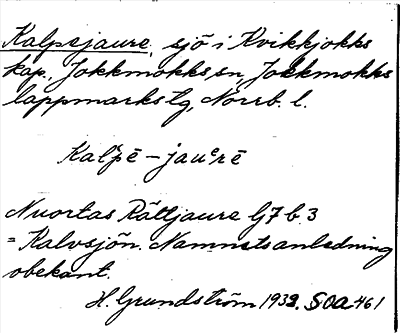 Kalpejaure, sjö i Kvikkjokks
kap., Jokkmokks sn, Jokkmokks
lappmarks tg, Norrb. l.
Kalpē – jauᵉrē
Nuortas Rättjaure G7 b. 3
= Kalvsjön. Namnets anledning
obekant.
H. Grundström 1932. SOA 461